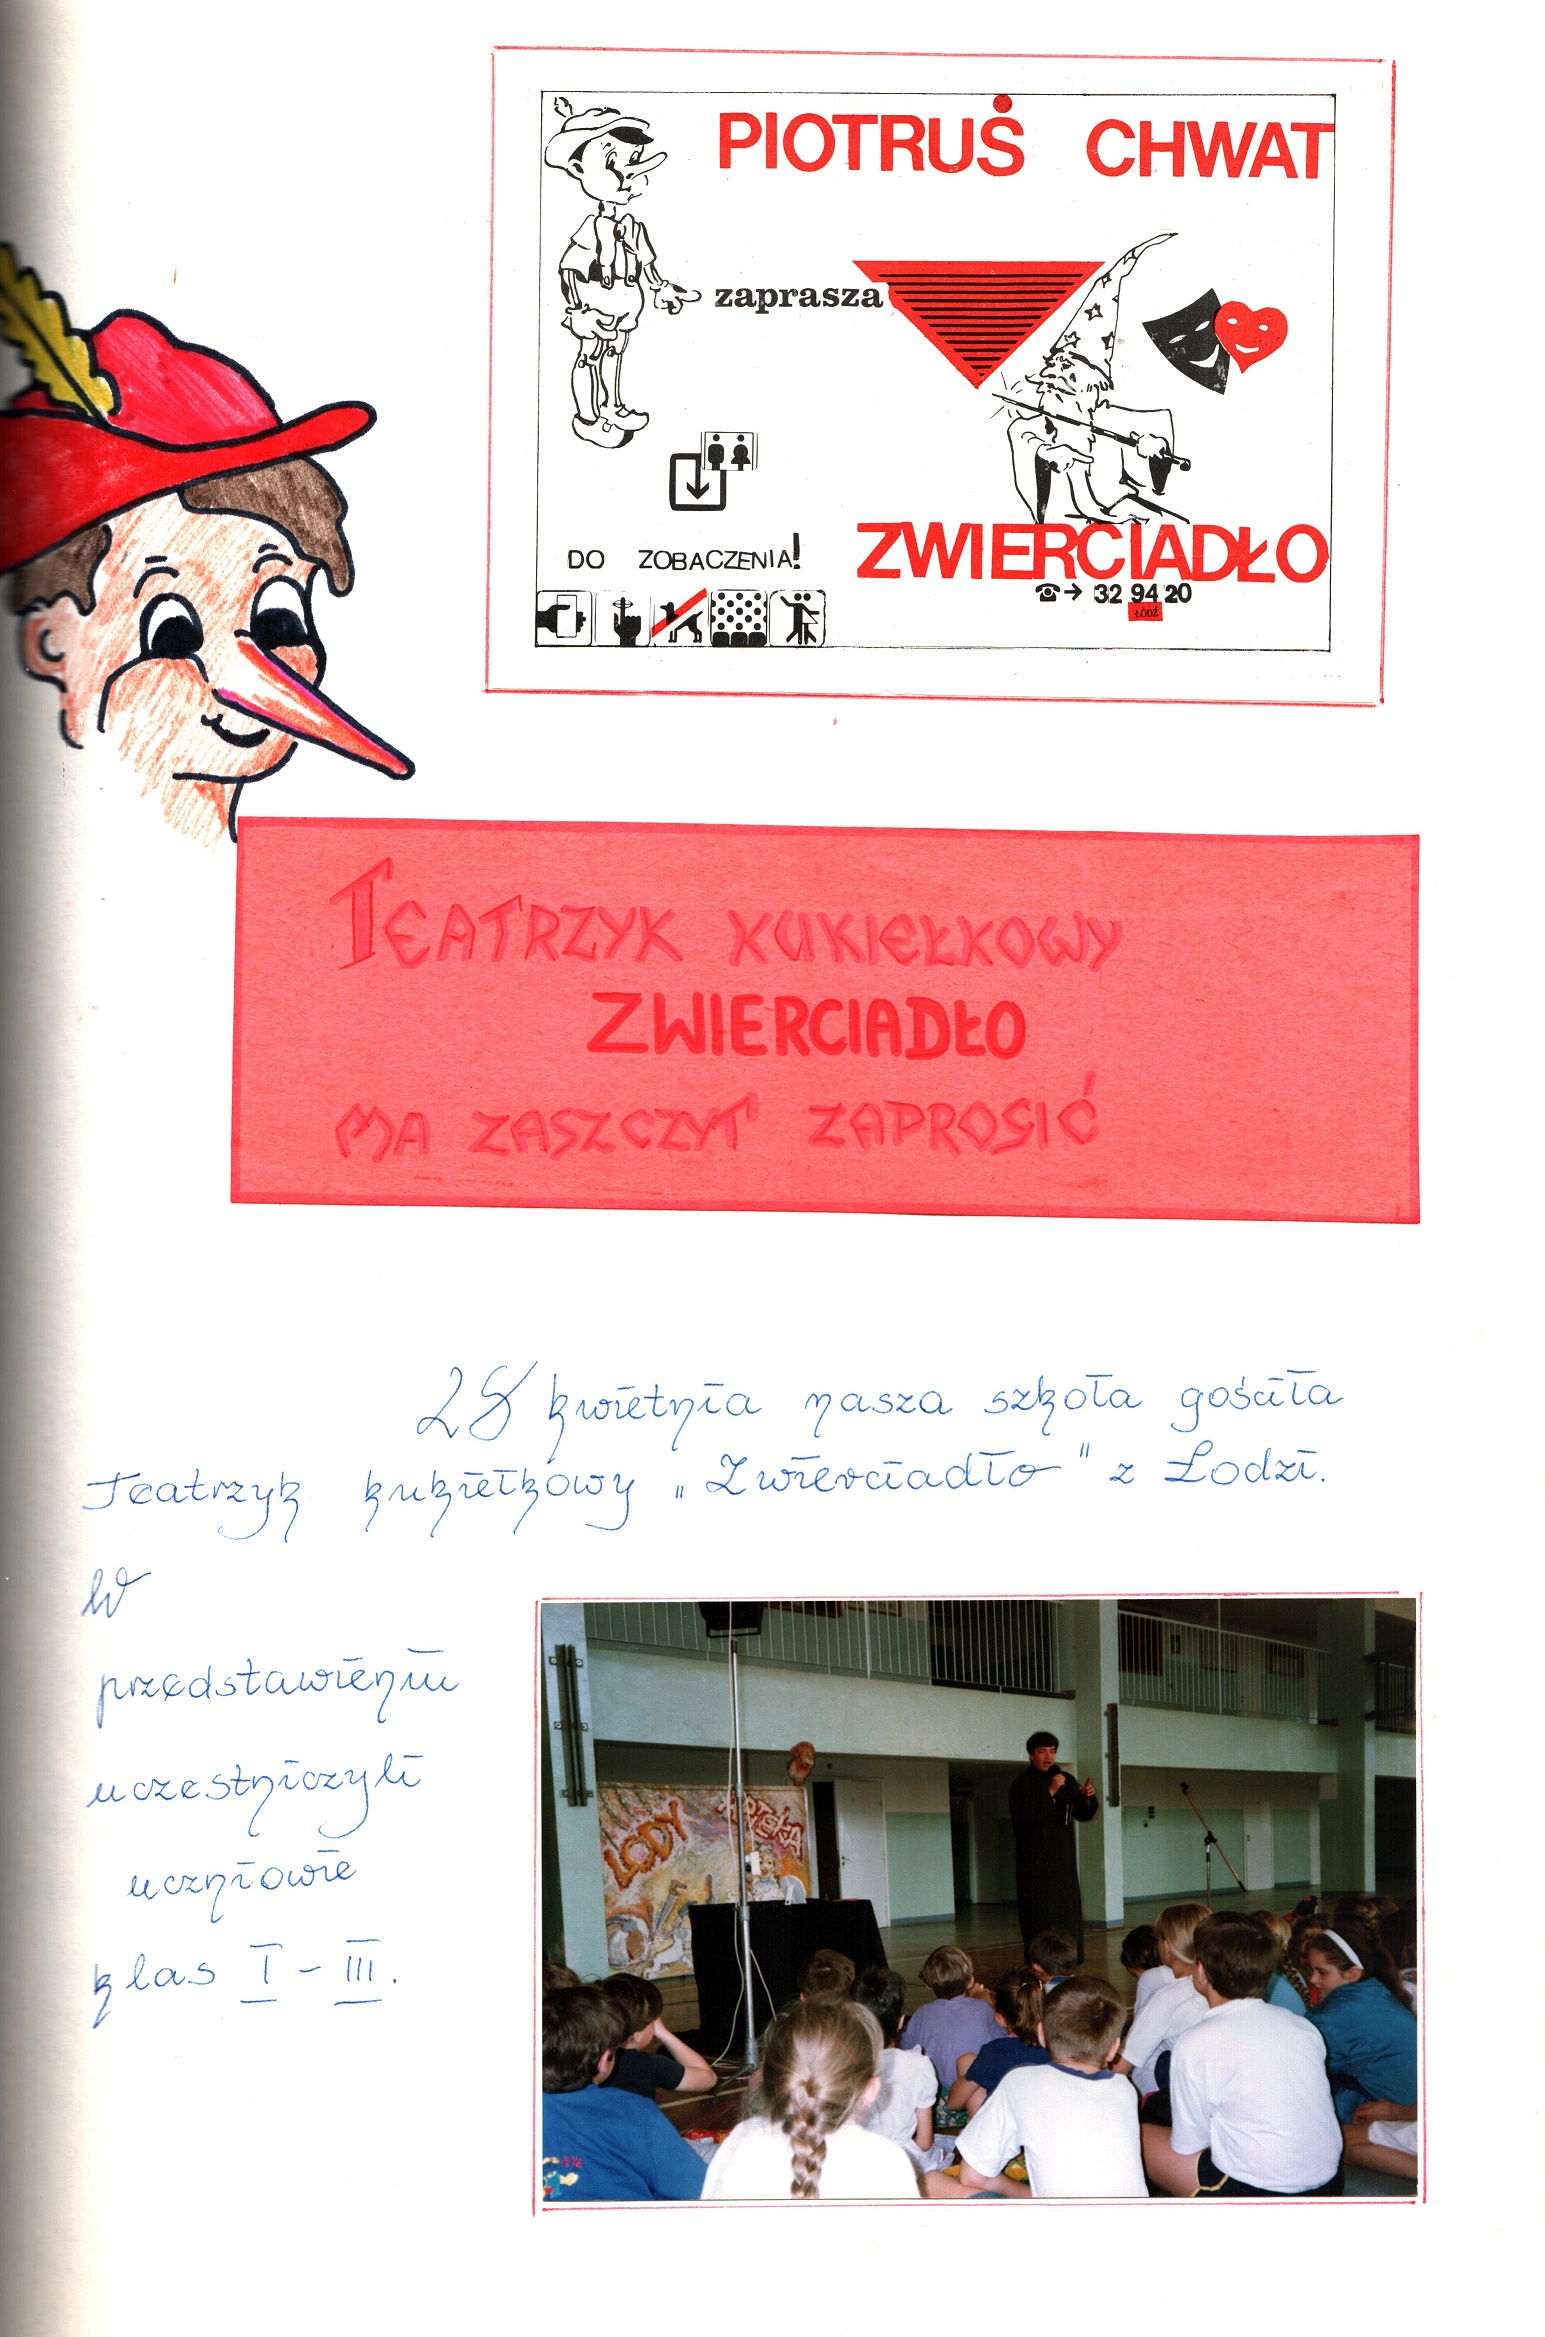 PIOTRUŚ CHWAT
zaprasza
DO ZOBACZENIA!
ZWIERCIADŁO
32 94 20
ŁÓDŹ
TEATRZYK KUKIEŁKOWY
ZWIERCIADŁO
MA ZASZCZYT ZAPROSIĆ
28 kwietnia nasza szkoła gościła
Teatrzyk kukiełkowy „Zwierciadło" z Łodzi.
W
przedstawieniu
uczestniczyli
uczniowie
klas I - III.
LODY
APTEKA